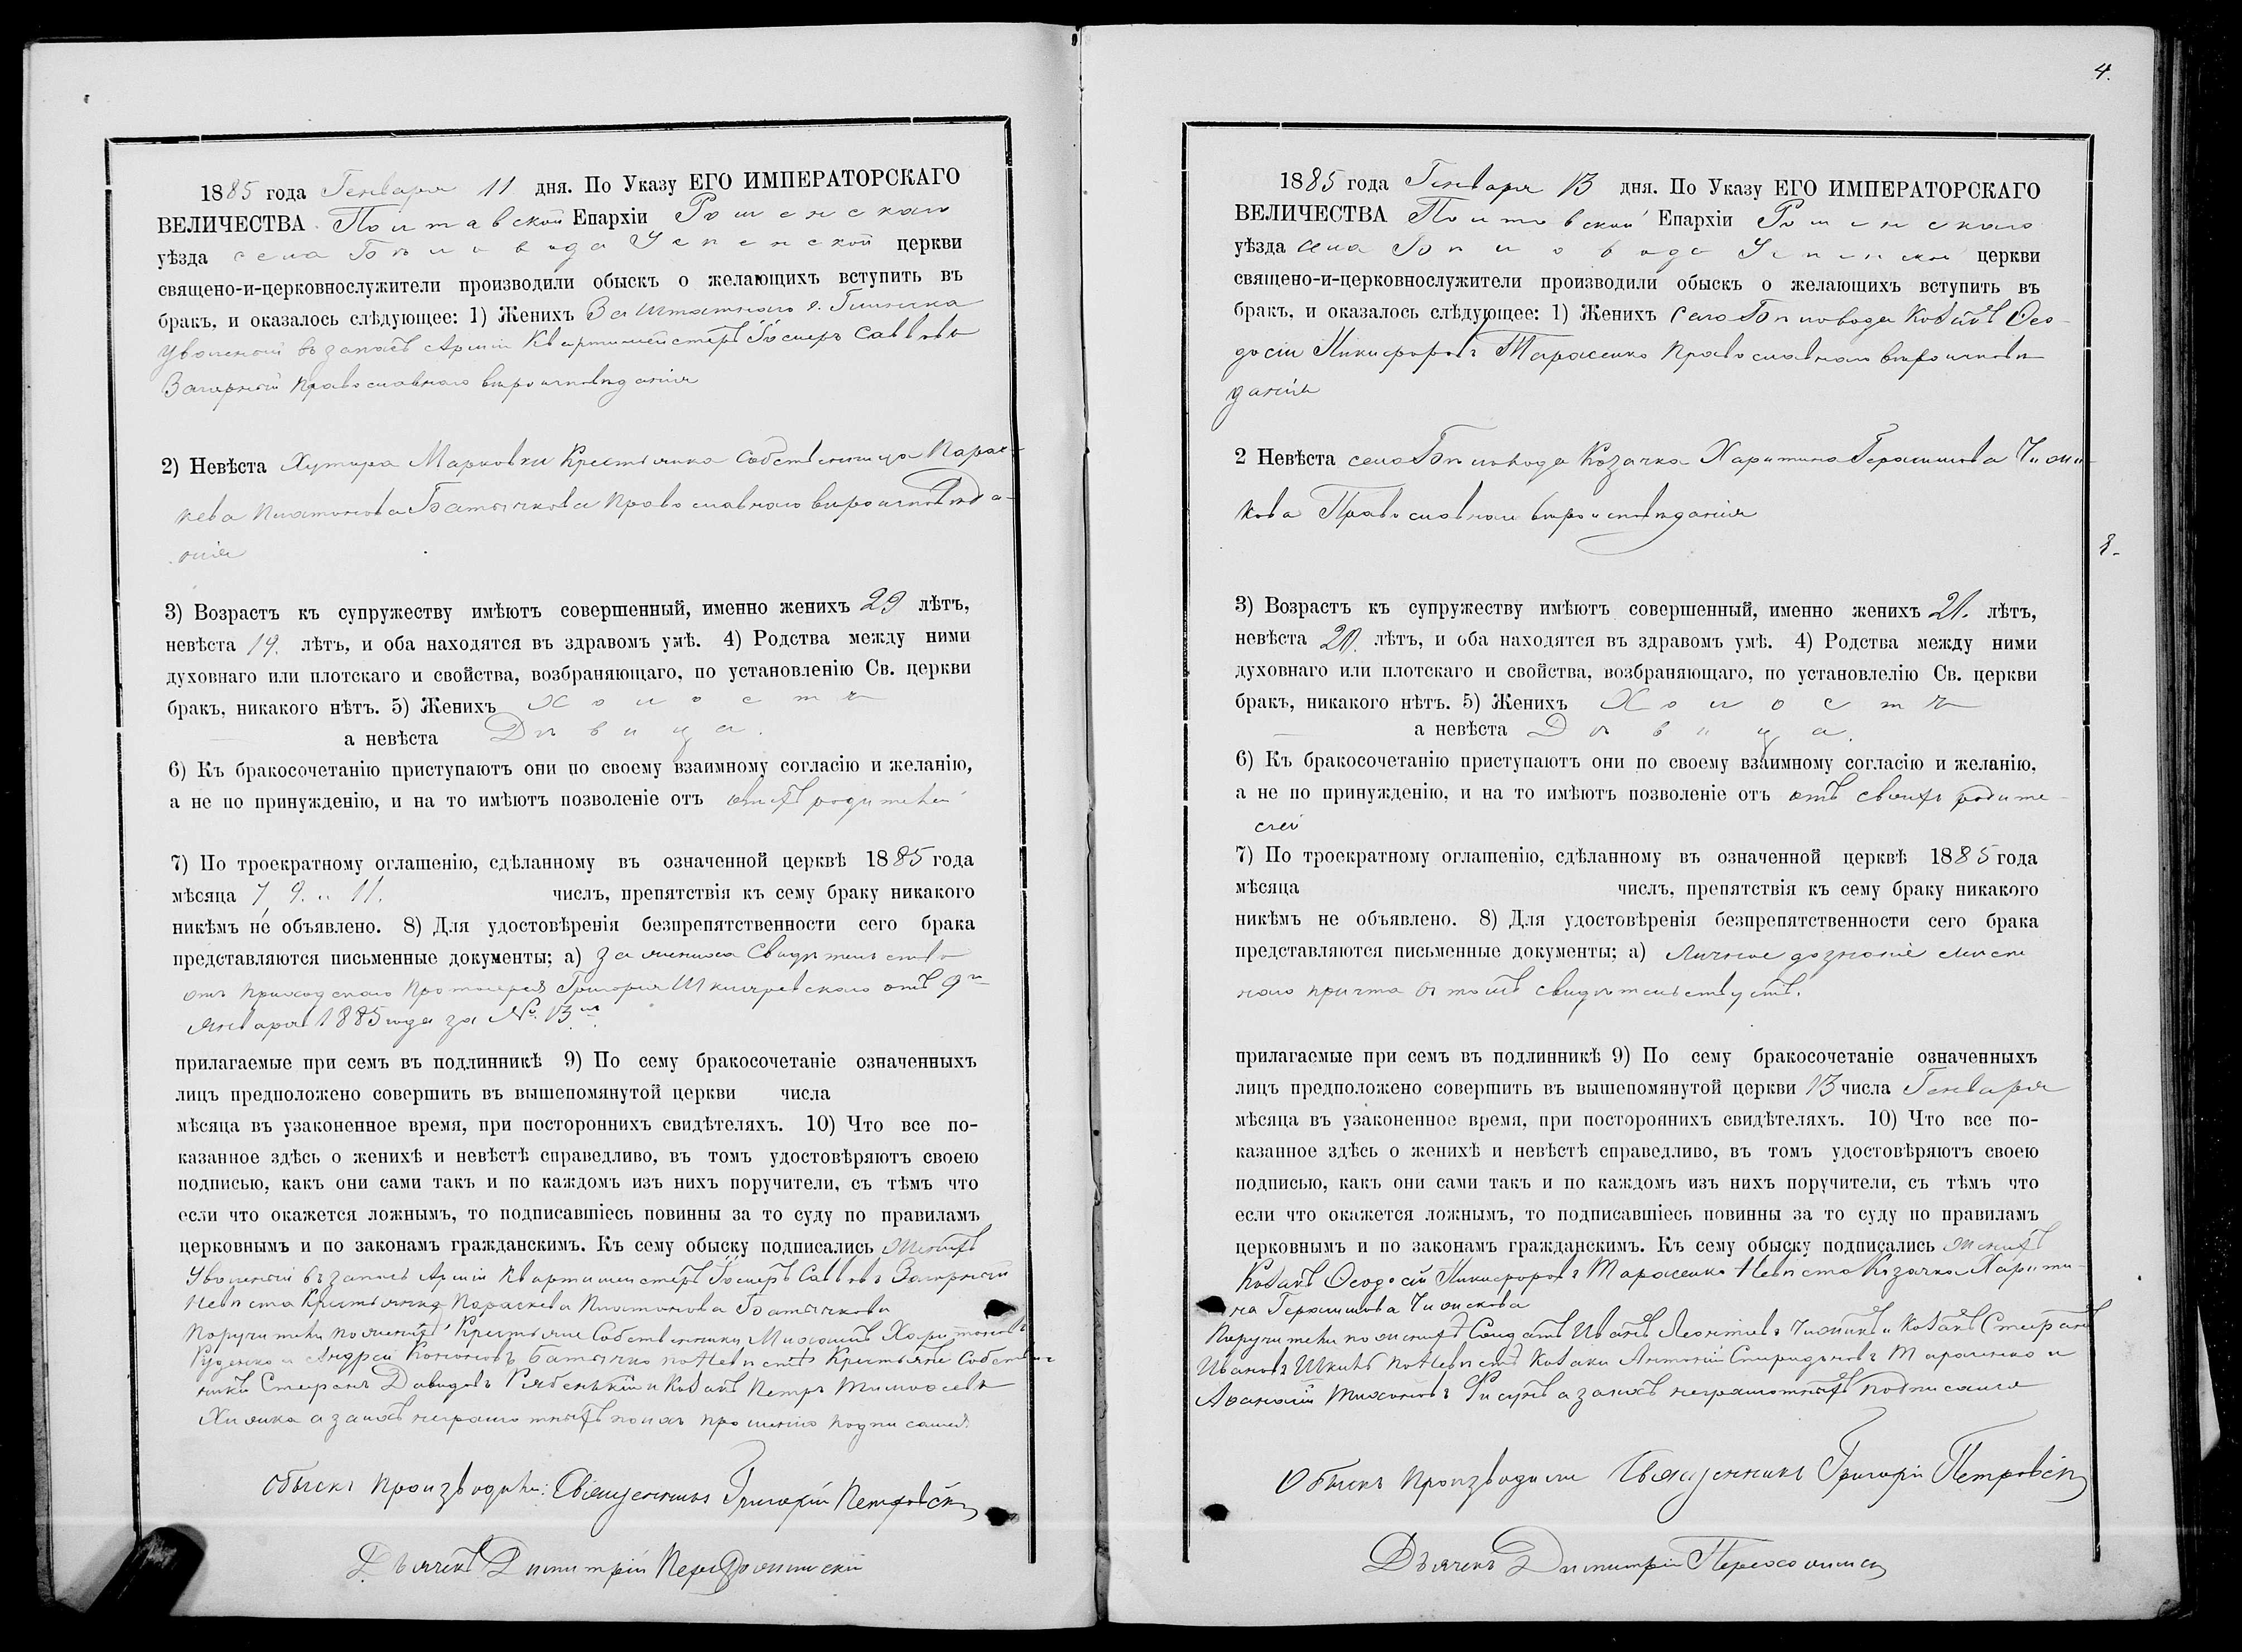 1885 года Генваря 11 дня. По Указу ЕГО ИМПЕРАТОРСКАГО
ВЕЛИЧЕСТВА Полтавской Епархіи Роменскаго
уѣзда села Бѣловода Успенской церкви
священо-и-церковнослужители производили обыскъ о желающихъ вступить въ
бракъ, и оказалось слѣдующее: 1) Женихъ Заштатнаго г. Глинска
Уволеный въ запасъ Арміи Квартирмейстеръ Госифъ Саввовъ
Загорный православнаго вѣроисповѣданія
2) Невѣста Хутора Марковки Крестьянка Собственница Парас-
кева Платонова Батычкова Православнаго вѣроисповѣда-
нія
3) Возрастъ къ супружеству имѣютъ совершенный, именно женихъ 29 лѣтъ,
невѣста 19. лѣтъ, и оба находятся въ здравомъ умѣ. 4) Родства между ними
духовнаго или плотскаго и свойства, возбраняющаго, по установленію Св. церкви
бракъ, никакого нѣтъ. 5) Женихъ Холостъ
а невѣста Дѣвица.
6) Къ бракосочетанію приступаютъ они по своему взаимному согласію и желанію,
а не по принужденію, и на то имѣютъ позволеніе отъ родителей
7) По троекратному оглашенію, сдѣланному въ означенной церквѣ 1885 года
мѣсяца 7, 9. и 11. числъ, препятствія къ сему браку никакого
никѣмъ не объявлено. 8) Для удостовѣренія безпрепятственности сего брака
представляются письменные документы; а) за жениха Свидѣтельство
отъ приходскаго Протоіерея Григорія отъ 9го
Января 1885 года за №. 13м
прилагаемые при семъ въ подлинникѣ 9) По сему бракосочетаніе означенныхъ
лицъ предположено совершить въ вышепомянутой церкви числа
мѣсяца въ узаконенное время, при постороннихъ свидѣтеляхъ. 10) Что все по-
казанное здѣсь о женихѣ и невѣстѣ справедливо, въ томъ удостовѣряютъ своею
подписью, какъ они сами такъ и по каждомъ изъ нихъ поручители, съ тѣмъ что
если что окажется ложнымъ, то подписавшіесь повинны за то суду по правиламъ
церковнымъ и по законамъ гражданскимъ. Къ сему обыску подписались женихъ
Уволеный въ запасъ Арміи Квартирмейстеръ Госифъ Саввовъ Загорный
Невѣста Крестьянка Параскева Платонова Батычкова
Поручители по женихѣ Крестьяне Собственники Михаилъ Харитоновъ
Руденко и Андрей Кононовъ Батычко по Невѣстѣ Крестьяне Собствен-
ники Стефанъ Давидовъ Рябенькій и Козакъ Петръ Тимофеевъ
Хижка а за ихъ неграмотныхъ по ихъ прошенію подписался
Обыскъ производили: Священникъ Григорій Петровскій
Дьячекъ Димитрій
4.
1885 года Генваря 13 дня. По Указу ЕГО ИМПЕРАТОРСКАГО
ВЕЛИЧЕСТВА Полтавской Епархіи Роменскаго
уѣзда села Бѣловода Успенской церкви
священо-и-церковнослужители производили обыскъ о желающихъ вступить въ
бракъ, и оказалось слѣдующее: 1) Женихъ села Бѣловода Козакъ Ѳео-
досій Никифоровъ Тарасенко Православнаго вѣроисповѣ-
данія
2 Невѣста села Бѣловода Козачка Харитина Герасимова
кова Православнаго вѣроисповѣданія
8.
3) Возрастъ къ супружеству имѣютъ совершенный, именно женихъ 21. лѣтъ,
невѣста 20. лѣтъ, и оба находятся въ здравомъ умѣ. 4) Родства между ними
духовнаго или плотскаго и свойства, возбраняющаго, по установлелію Св. церкви
бракъ, никакого нѣтъ. 5) Женихъ Холостъ
а невѣста Дѣвица.
6) Къ бракосочетанію приступаютъ они по своему взаимному согласію и желанію,
а не по принужденію, и на то имѣютъ позволеніе отъ отъ своихъ родите-
лей
7) По троекратному оглашенію, сдѣланному въ означенной церквѣ 1885 года
мѣсяца числъ, препятствія къ сему браку никакого
никѣмъ не объявлено. 8) Для удостовѣренія безпрепятственности сего брака
представляются письменные документы; а) Личное дознаніе мѣст-
наго причта о томъ свидѣтельствуетъ.
прилагаемые при семъ въ подлинникѣ 9) По сему бракосочетаніе означенныхъ
лицъ предположено совершить въ вышепомянутой церкви 13 числа Генваря
мѣсяца въ узаконенное время, при постороннихъ свидѣтеляхъ. 10) Что все по-
казанное здѣсь о женихѣ и невѣстѣ справедливо, въ томъ удостовѣряютъ своею
подписью, какъ они сами такъ и по каждомъ изъ нихъ поручители, съ тѣмъ что
если что окажется ложнымъ, то подписавшіесь повинны за то суду по правиламъ
церковнымъ и по законамъ гражданскимъ. Къ сему обыску подписались женихъ
Козакъ Ѳеодосій Никифоровъ Тарасенко Невѣста Козачка Харити-
на Герасимова
Поручители по женихѣ Солдатъ Иванъ Леонтіевъ и Козакъ Стефанъ
Ивановъ Шкиль по Невѣстѣ Козаки Антоній Спиридоновъ Тарасенко и
Аѳанасій Тихоновъ а за ихъ неграмотныхъ подписался
Обыскъ производили Священникъ Григорій Петровскій
Дьячекъ Димитрій